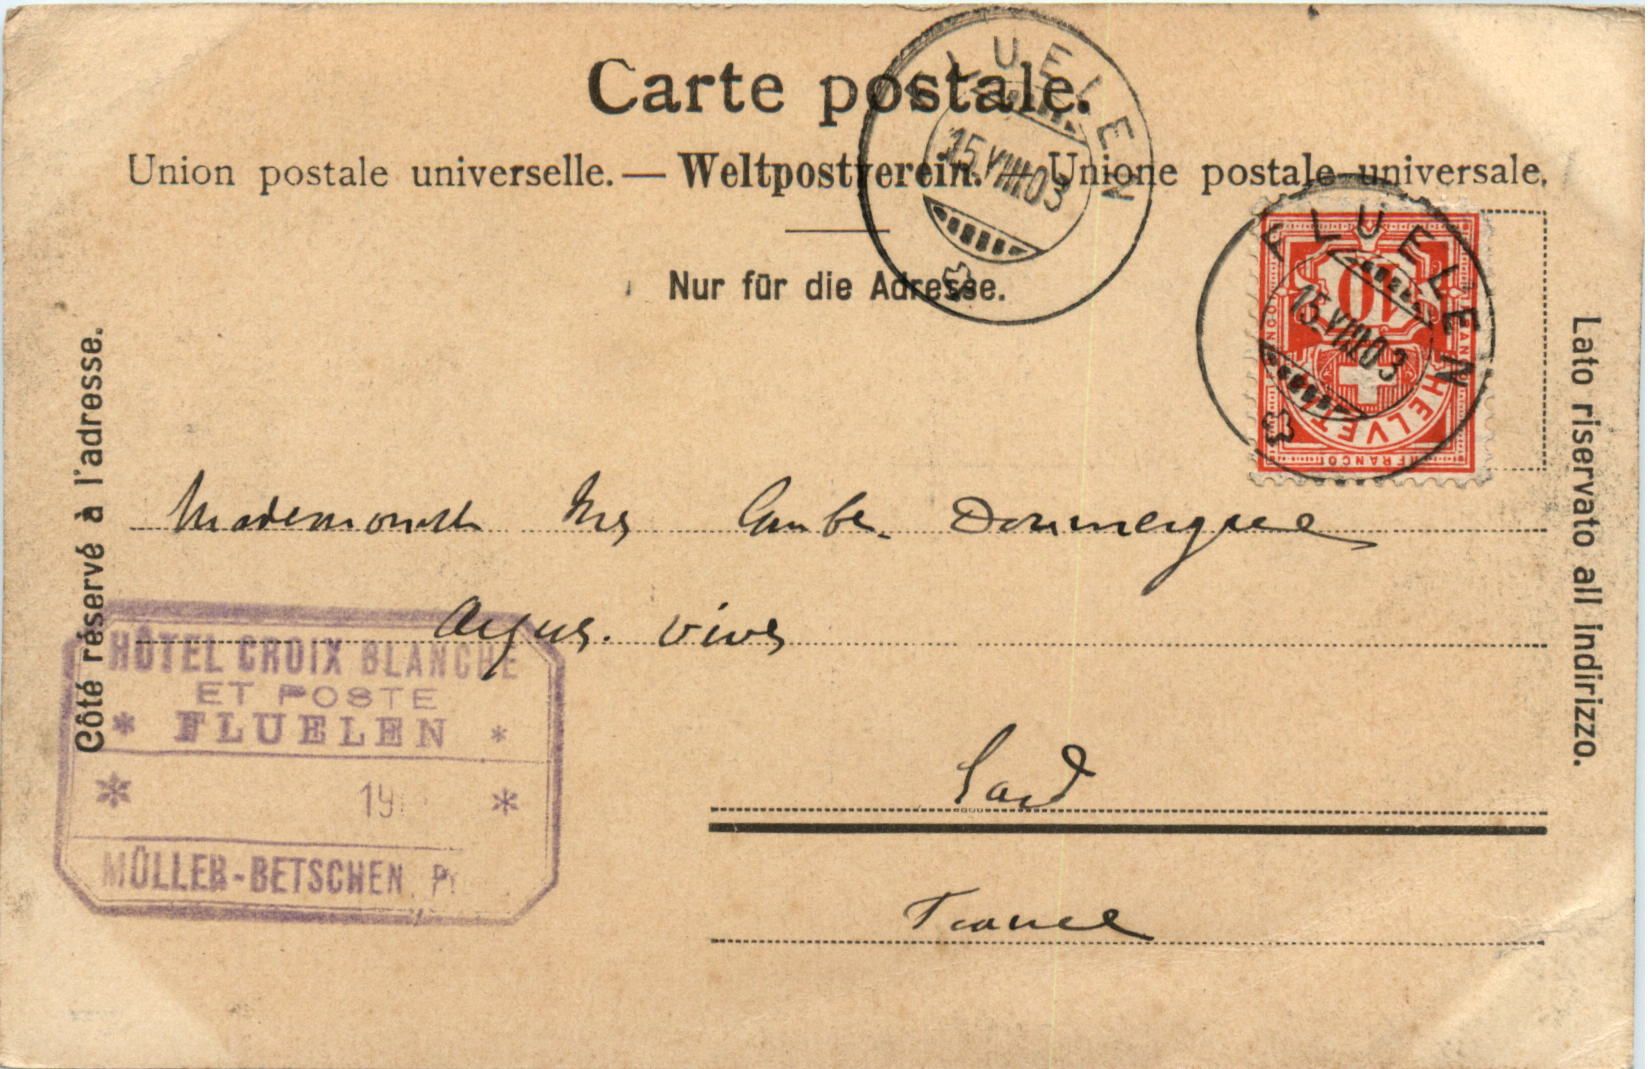 Carte postale.
Union postale universelle. — Weltpostverein. — Unione postale universale.
Nur für die Adresse.
FLUELEN
15.VIII.03
FLUELEN
15.VIII.03
10
HELVETIA
FRANCO
Côté réservé à l'adresse.
Lato riservato all indirizzo.
Mademoiselle Doumergue
Aigues. Vives
HÔTEL CROIX BLANCHE
ET POSTE
* FLUELEN *
* 19 *
MÜLLER-BETSCHEN,
Gard
France